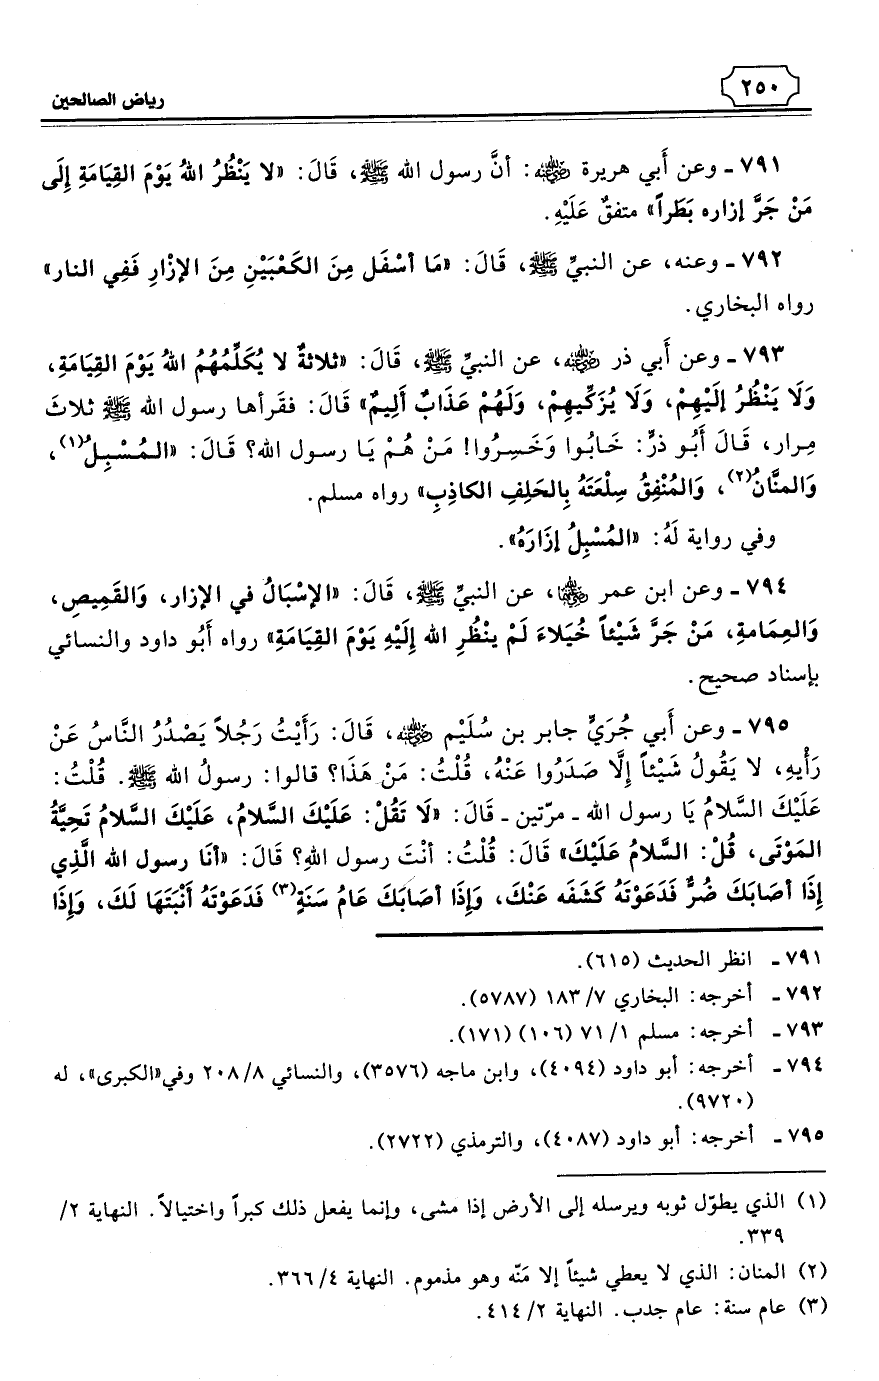 ٢٥٠
رياض الصالحين
٧٩١ ـ وعن أَبي هريرة رضي الله عنه: أنَّ رسول الله ﷺ، قَالَ: «لا يَنْظُرُ اللهُ يَوْمَ القِيَامَةِ إِلَى
مَنْ جَرَّ إزاره بَطَراً» متفقٌ عَلَيْهِ.
٧٩٢ ـ وعنه، عن النبيِّ ﷺ، قَالَ: «مَا أسْفَل مِنَ الكَعْبَيْنِ مِنَ الإزْارِ فَفِي النار»
رواه البخاري.
٧٩٣ ـ وعن أَبي ذر رضي الله عنه، عن النبيِّ ﷺ، قَالَ: «ثلاثةٌ لا يُكَلِّمُهُمُ اللهُ يَوْمَ القِيَامَةِ،
وَلَا يَنْظُرُ إلَيْهِمْ، وَلَا يُزَكِّيهِمْ، وَلَهُمْ عَذَابٌ أَلِيمٌ» قَالَ: فقَرأها رسول الله ﷺ ثلاثَ
مِرار، قَالَ أَبُو ذرٍّ: خَابُوا وَخَسِرُوا! مَنْ هُمْ يَا رسول الله؟ قَالَ: «المُسْبِلُ(١)،
وَالمنَّانُ(٢)، وَالمُنْفِقُ سِلْعَتَهُ بِالحَلِفِ الكاذِبِ» رواه مسلم.
وفي رواية لَهُ: «المُسْبِلُ إزَارَهُ».
٧٩٤ ـ وعن ابن عمر رضي الله عنهما، عن النبيِّ ﷺ، قَالَ: «الإسْبَالُ في الإزار، وَالقَمِيصِ،
وَالعِمَامةِ، مَنْ جَرَّ شَيْئاً خُيَلاءَ لَمْ ينْظُرِ الله إِلَيْهِ يَوْمَ القِيَامَةِ» رواه أَبُو داود والنسائي
بإسناد صحيح.
٧٩٥ ـ وعن أَبي جُرَيٍّ جابر بن سُلَيْم رضي الله عنه، قَالَ: رَأَيْتُ رَجُلاً يَصْدُرُ النَّاسُ عَنْ
رَأْيهِ، لا يَقُولُ شَيْئاً إلَّا صَدَرُوا عَنْهُ، قُلْتُ: مَنْ هَذَا؟ قالوا: رسولُ الله ﷺ. قُلْتُ:
عَلَيْكَ السَّلامُ يَا رسول الله ـ مرّتين ـ قَالَ: «لَا تَقُلْ: عَلَيْكَ السَّلامُ، عَلَيْكَ السَّلامُ تَحِيَّةُ
المَوْتَى، قُلْ: السَّلامُ عَلَيْكَ» قَالَ: قُلْتُ: أنْتَ رسول اللهِ؟ قَالَ: «أنَا رسول الله الَّذِي
إِذَا أصَابَكَ ضُرٌّ فَدَعَوْتَهُ كَشَفَه عَنْكَ، وَإِذَا أصَابَكَ عَامُ سَنَةٍ(٣) فَدَعَوْتَهُ أَنْبَتَهَا لَكَ، وَإِذَا
٧٩١ ـ انظر الحديث (٦١٥).
٧٩٢ ـ أخرجه: البخاري ٧/ ١٨٣ (٥٧٨٧).
٧٩٣ ـ أخرجه: مسلم ١/ ٧١ (١٠٦) (١٧١).
٧٩٤ ـ أخرجه: أبو داود (٤٠٩٤)، وابن ماجه (٣٥٧٦)، والنسائي ٨/ ٢٠٨ وفي«الكبرى»، له
(٩٧٢٠).
٧٩٥ ـ أخرجه: أبو داود (٤٠٨٧)، والترمذي (٢٧٢٢).
(١) الذي يطوّل ثوبه ويرسله إلى الأرض إذا مشى، وإنما يفعل ذلك كبراً واختيالاً. النهاية ٢/
٣٣٩.
(٢) المنان: الذي لا يعطي شيئاً إلا مَنّه وهو مذموم. النهاية ٤/ ٣٦٦.
(٣) عام سنة: عام جدب. النهاية ٢/ ٤١٤.